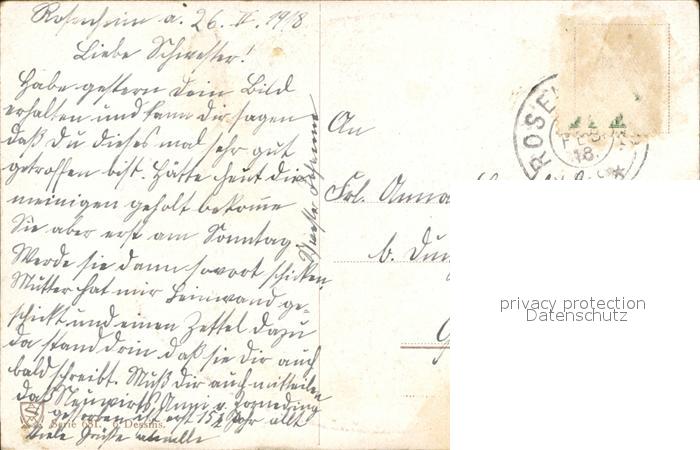 Rosenheim a. 26. II. 1918
Liebe Schwester!
Habe gestern Dein Bild
erhalten und kann dir sagen
daß Du dieses mal sehr gut
getroffen bist. Hätte heut die
meinigen geholt bekomme
Sie aber erst am Sonntag.
Werde sie dann sovort schicken
Mutter hat mir Leinwand ge-
schickt und einen Zettel dazu
da stand drin daß sie dir auch
bald schreibt. Muß dir auch mitteilen
das Neuwirts Anni v. Zorneding
gestorben ist erst 15½ Jahr alt!
Viele Grüße
Serie 681. 6 Dessins.
An
Frl. Anna
b.
ROSEN
FEB.
18.
privacy protection
Datenschutz